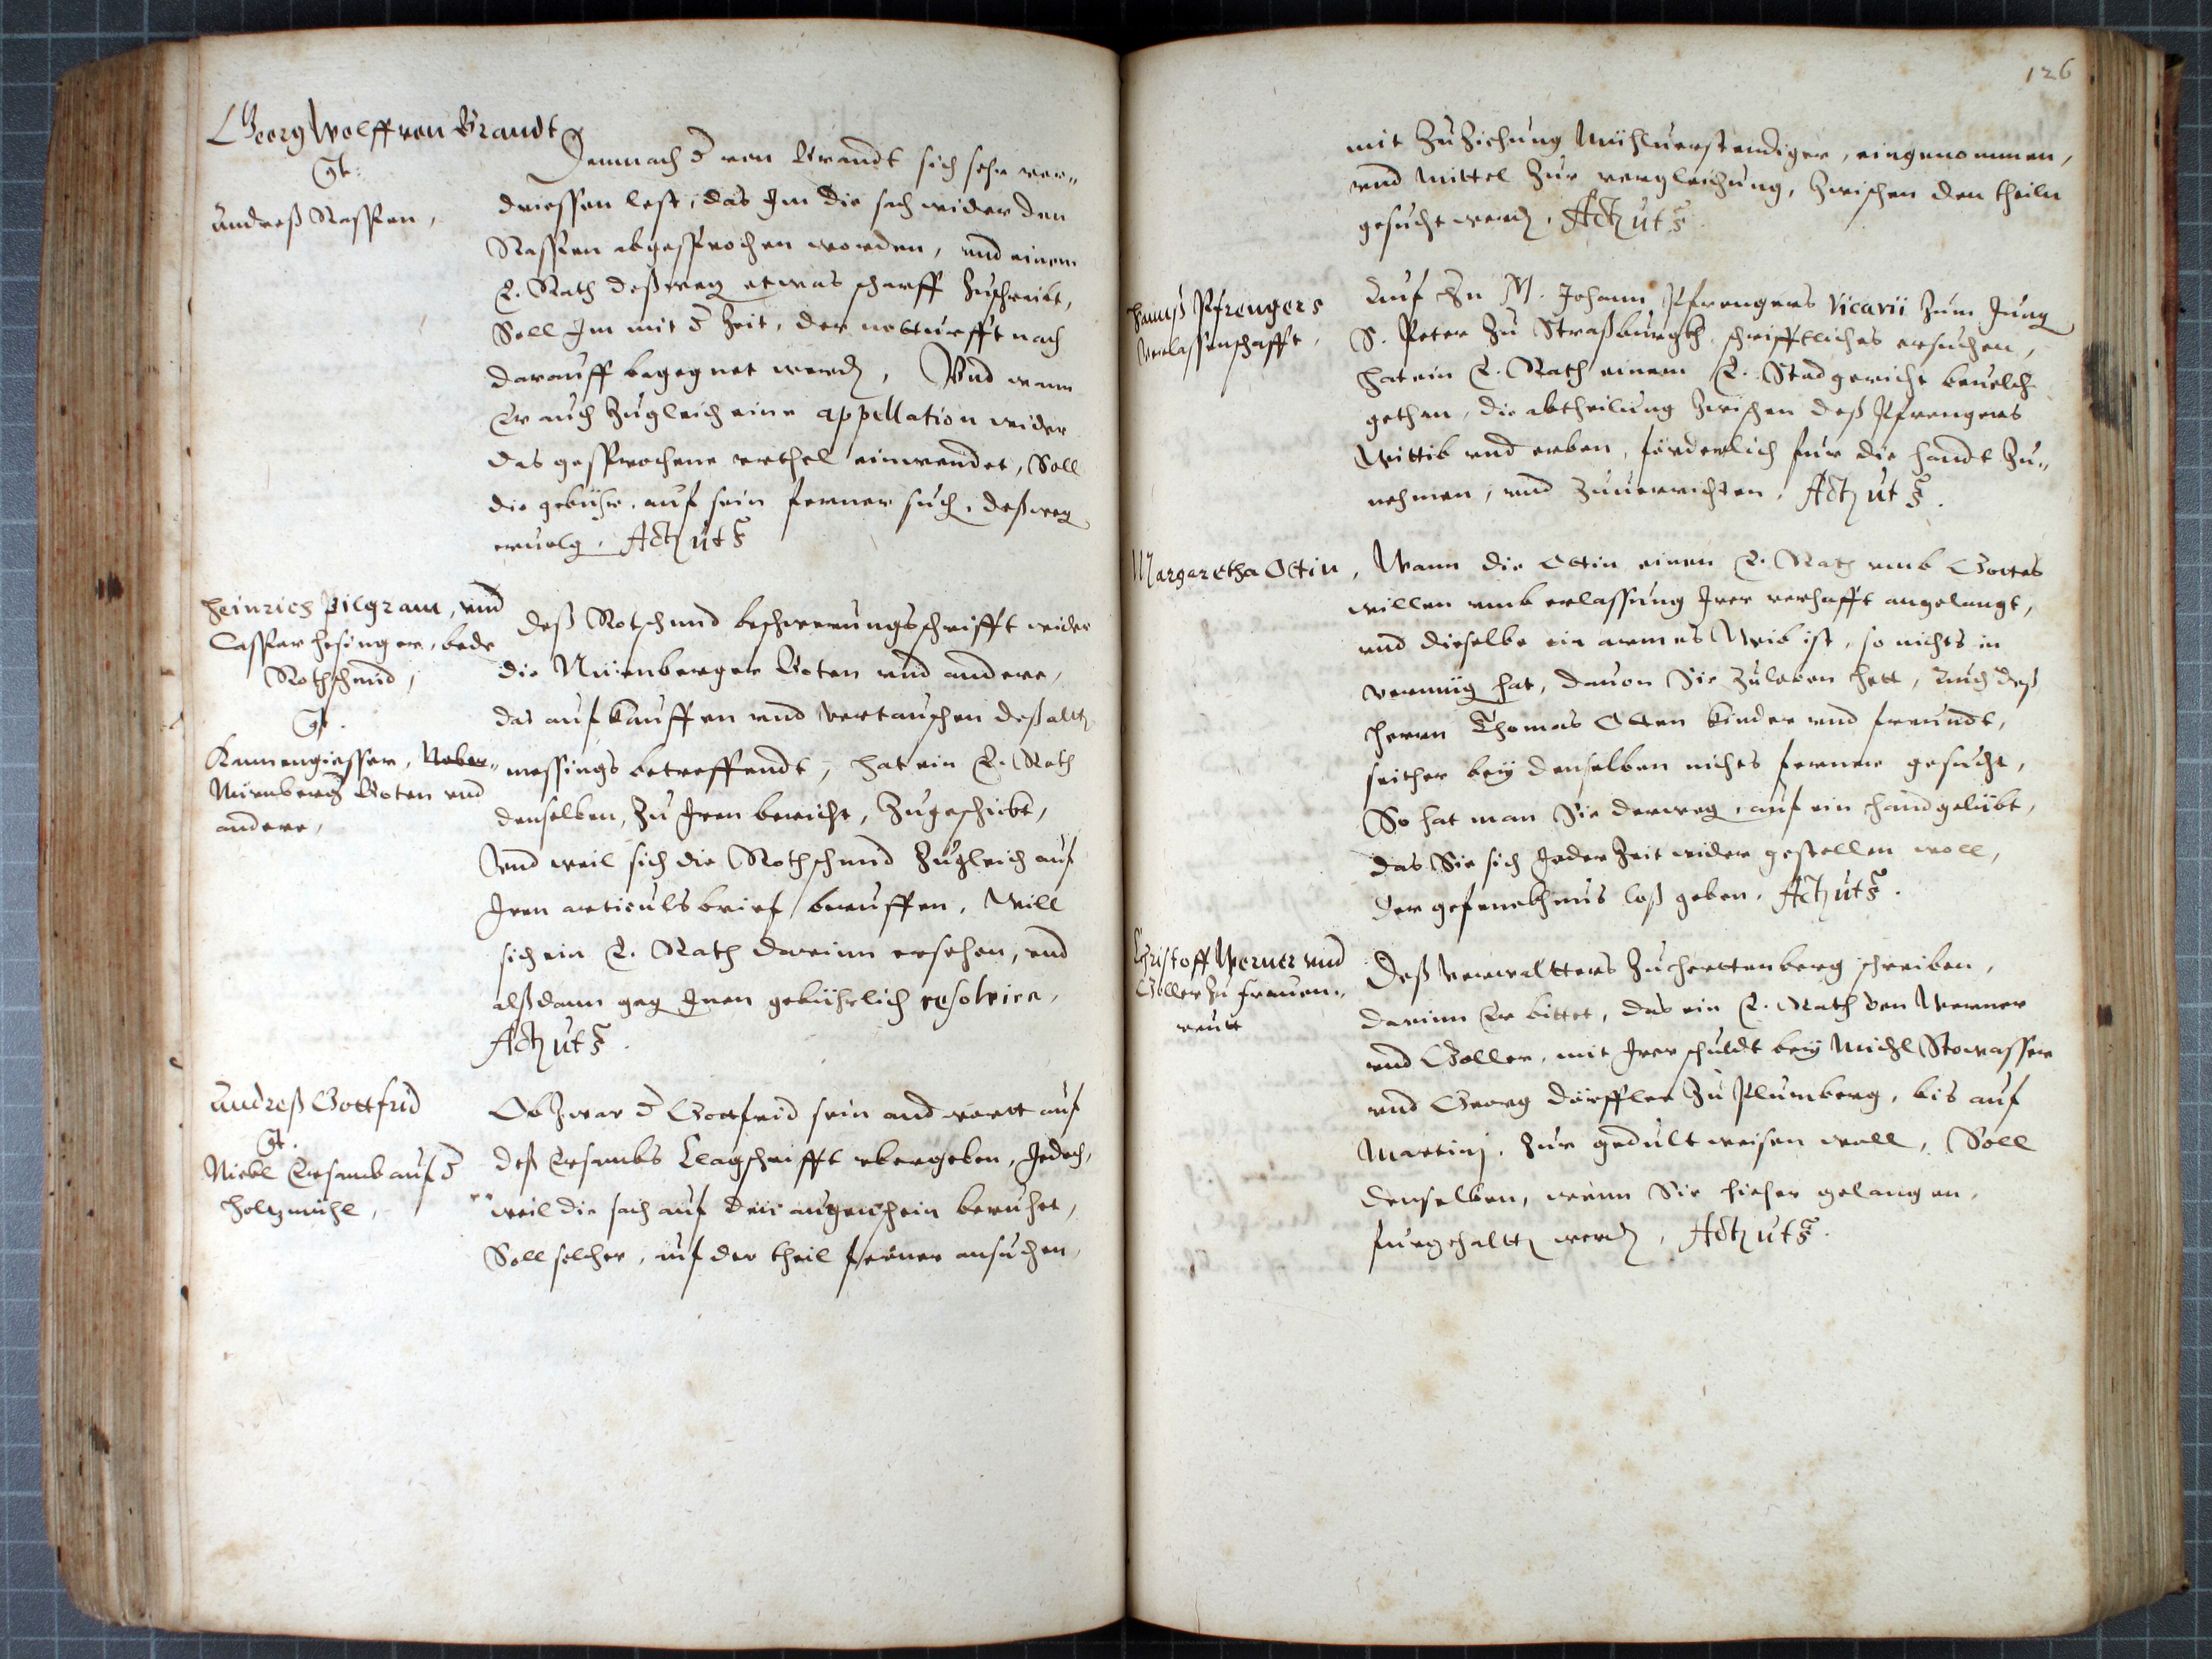 Georg Wolff von Brandt
gt:
Andreß Raspen,
Demnach d von Brandt sich sehr ver„
driessen lest, das Im die sach wider den
Raspen abgesprochen worden, und einem
E. Rath deßweg etwas scharff Zuschreibt,
Soll Im mit d Zeit, der notturfft nach
darauff begegnet werd, Und wann
Er auch Zugleich eine appellation wider
das gesprochene urthel einwendet, Soll
die gebühr, auf sein ferner such, deßweg
ervolg. Act ut s
Heinrich Pilgram, und
Caspar Hesinger, bede
Rothschmid,
gt.
Kannengiesser, Neben„
Nürnberg Boten und
andere,
Deß Rotschmid beschwerungsschrifft wider
die Nürnberger Boten und andere,
das aufkauffen und vertauschen deß allt
messings betreffendt, hat ein E. Rath
denselben, Zu Iren bericht, Zugeschickt,
Und weil sich die Rothschmid Zugleich auf
Iren articulsbrief beruffen, Will
sich ein E. Rath darinn ersehen, und
alßdann geg Inen gebührlich resolvirn,
Act ut s.
Andreß Gottfrid
gt.
Nickl Ersamb auf d
Holtzmühl,
Ob Zwar d Gottfrid sein andwortt auf
deß Ersambs Clagschrifft ubergeben, Jedoch,
weil die sach auf den augenschein beruhet,
Soll solcher, auf der theil ferner ansuchen,
126
mit ZuZiehung Mühlverstendiger, eingenommen,
und Mittel Zur vergleichung, Zwischen den theiln
gesucht werd, Act ut s
Hannß Pfrengers
Verlassenschafft,
Auf Hn M. Johann Pfrengers Vicarii Zum Jung
S. Peter Zu Straßburgkh, schrifftliches ersuchen,
hat ein E. Rath einem E. Stadgericht bevelch
gethan, die abtheilung Zwischen deß Pfrengers
Wittib und erben, förderlich fur die handt Zu„
nehmen, und Zuverrichten, Act ut s.
Margaretha Ottin,
Wann die Ottin einen E. Rath umb Gottes
willen umb erlassung Irer verhafft angelangt,
und dieselbe ein armes Weib ist, so nichts in
vermüg hat, davon Sie Zuleben hett, Auch deß
Herrn Thomas Otten kinder und freundt,
seither bey denselben nichts ferner gesucht,
So hat man Sie derweg, auf ein handgelübt,
das Sie sich Jeder Zeit wider gestellen woll,
der gefenckhnus loß geben. Act ut s.
Christoff Werner und
Göller Zu Frauen„
reutt
Deß Verwaltters Zu Herttenberg schreiben,
darinn Er bittet, das ein E. Rath den Werner
und Göller, mit Irer schuldt bey Michl Stowasser
und Georg dörffler Zu Plumberg, bis auf
Martinj, Zur gedult weisen woll, Soll
denselben, wann Sie hieher gelangen,
furgehaltt werd, Act ut s.